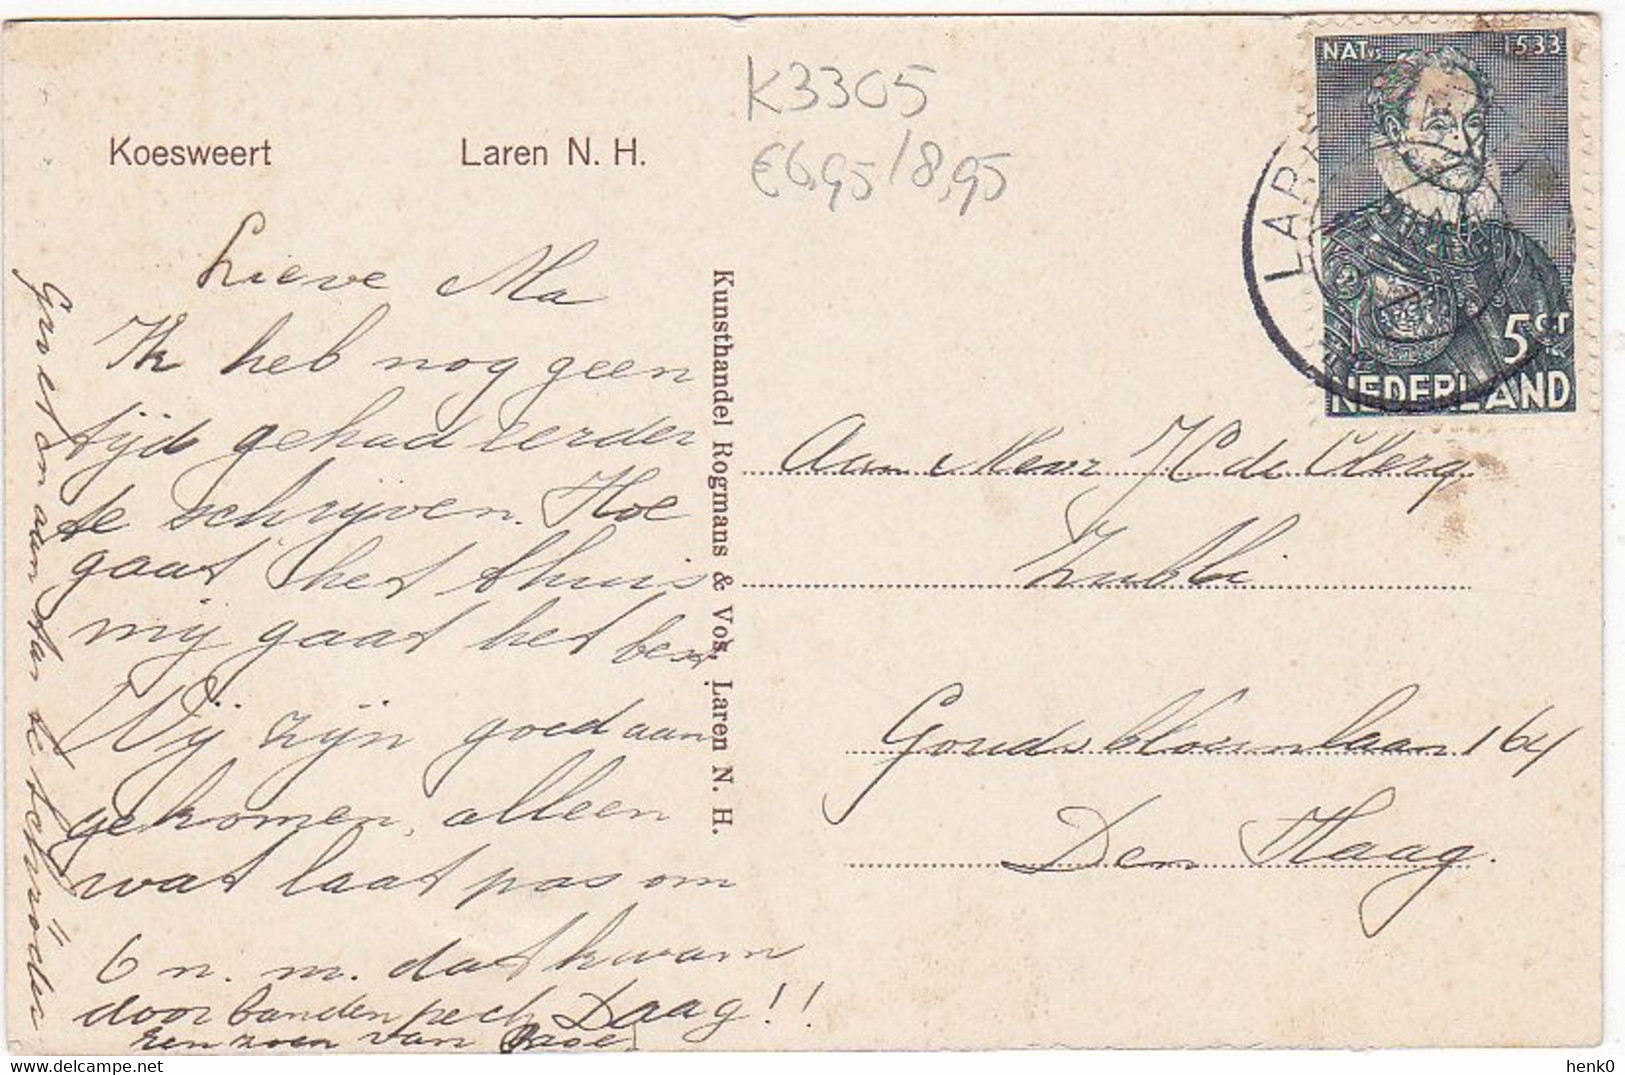 Koesweert Laren N. H.
K3305
€6,95/8,95
NAT. 1533
5ct
NEDERLAND
LAREN
Lieve Ma
Ik heb nog geen
tijd gehad eerder
te schrijven. Hoe
gaat het thuis
mij gaat het best
Wij zijn goed aan
gekomen, alleen
wat laat pas om
6 n. m. dat kwam
door bandenpech Daag!!
een zoen van
Groeten aan
Kunsthandel Rogmans & Vos, Laren N. H.
Aan Mevr de Clerq
Goudsbloemlaan 164
Den Haag.
henk0